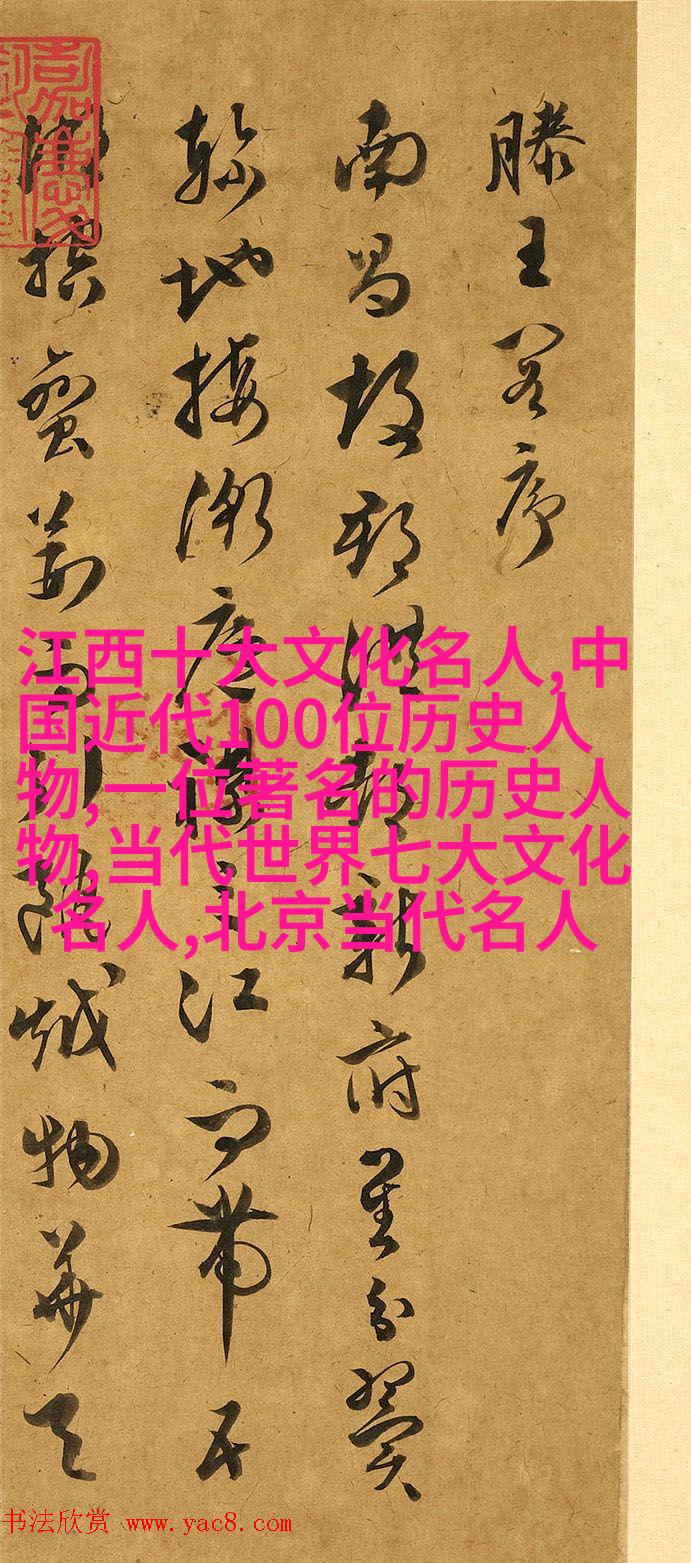 滕王閣序
南昌故郡洪都新府星分翼
軫地接衡廬襟三江而帶五
湖控蠻荊而引甌越物華天
江西十大文化名人,中
国近代100位历史人
物,一位著名的历史人
物,当代世界七大文化
名人,北京当代名人
书法欣赏 www.yac8.com